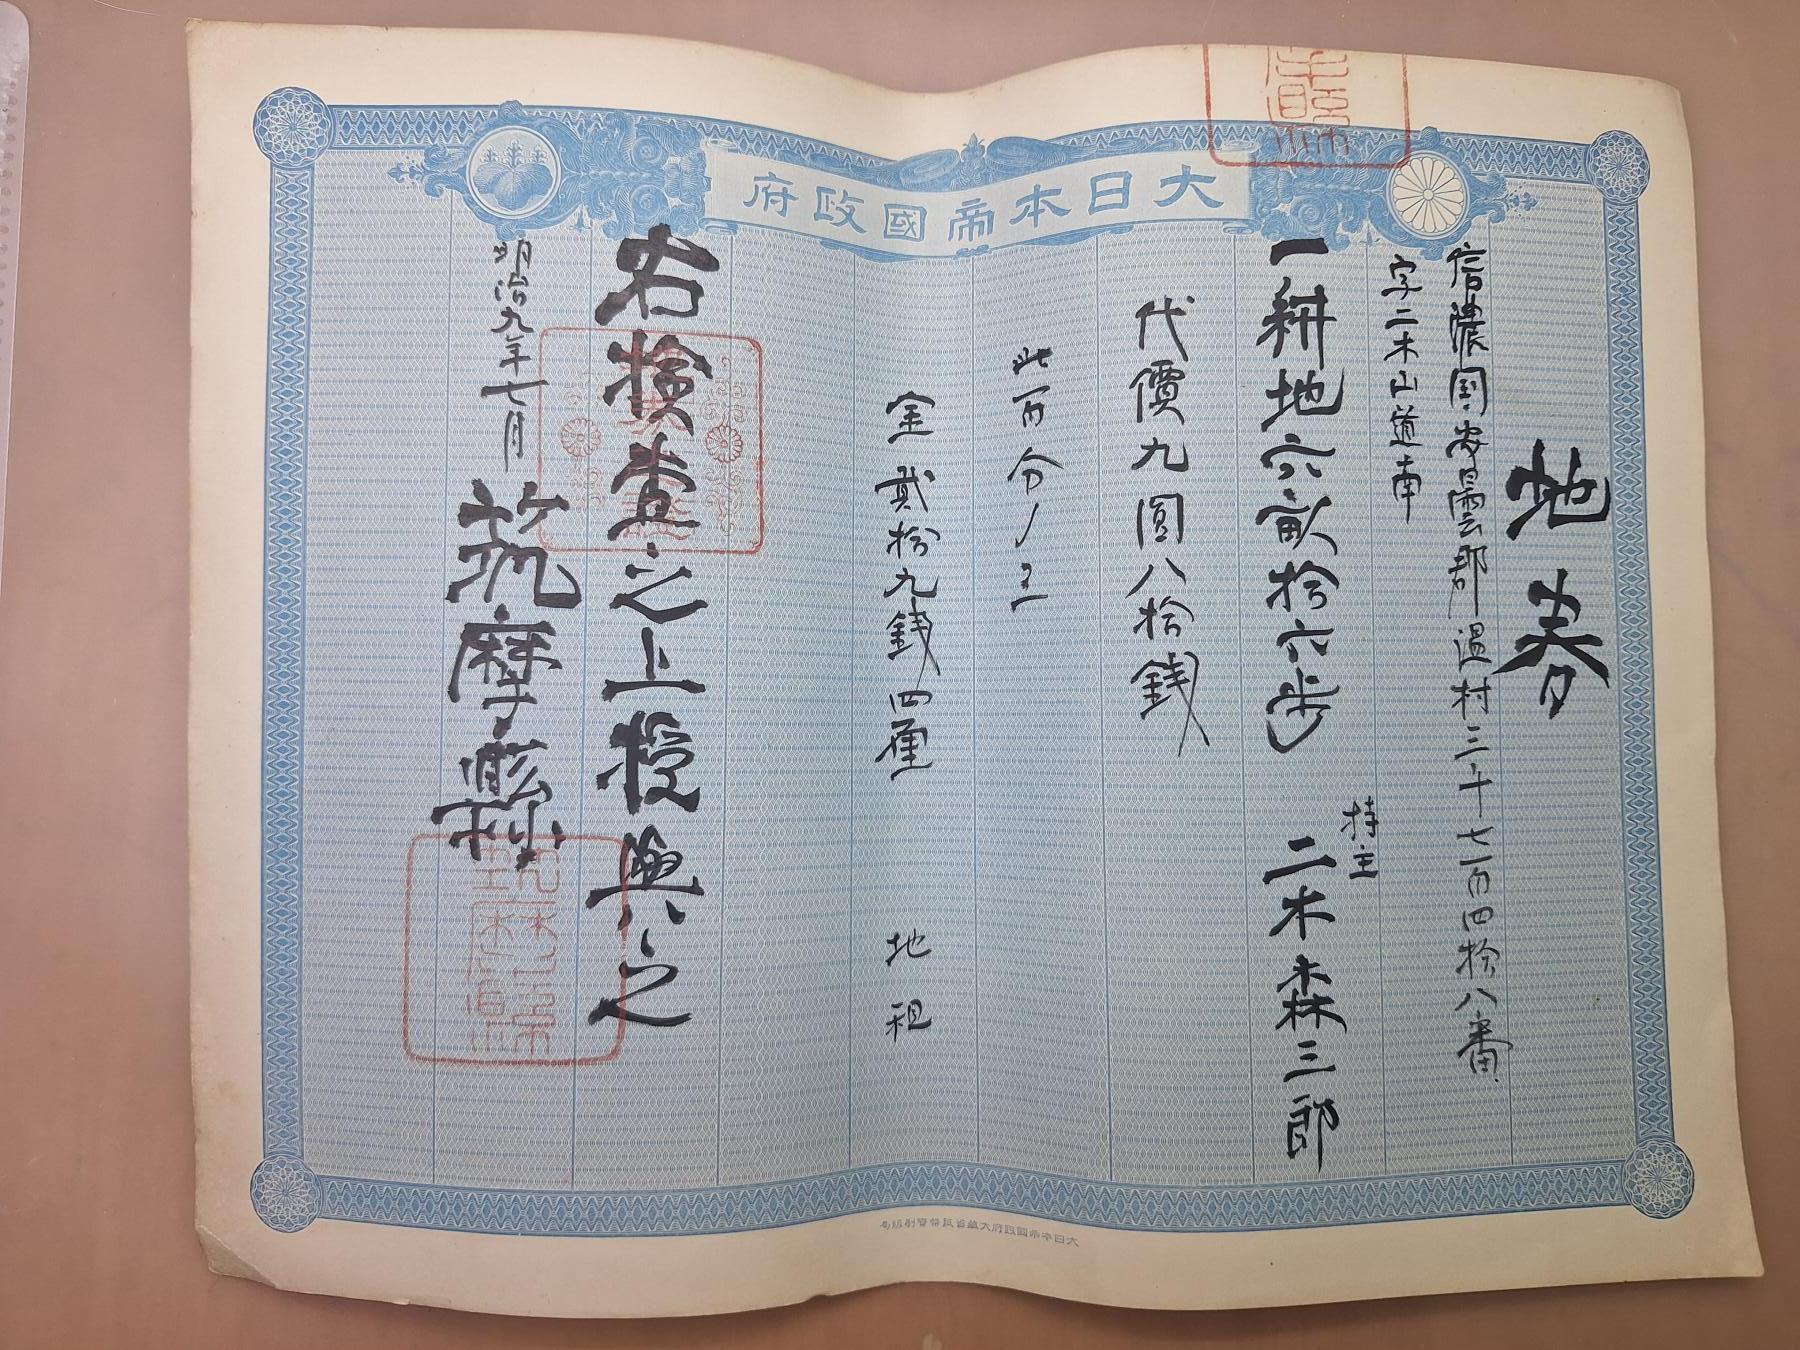 大日本帝國政府
地券
信濃国安曇郡温村三千七百四拾八番
字二木山道南
一耕地六畝拾六歩
持主
二木森三郎
代價九圓八拾錢
此百分ノ三
金貳拾九錢四厘
地租
右検査之上授與之
明治九年七月
筑摩縣
大日本帝國政府大蔵省紙幣寮製造